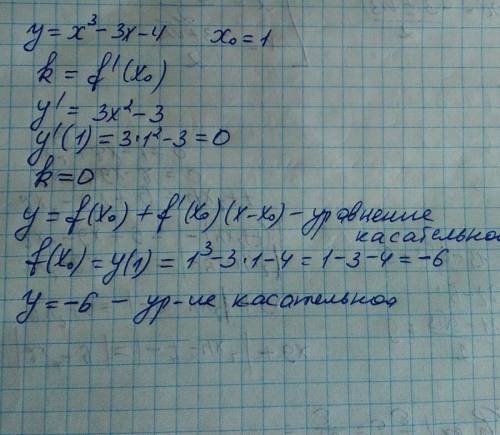 y = x³ - 3x - 4 x₀ = 1
k = f'(x₀)
y' = 3x² - 3
y'(1) = 3·1² - 3 = 0
k = 0
y = f(x₀) + f'(x₀)(x - x₀) - уравнение
касательной
f(x₀) = y(1) = 1³ - 3·1 - 4 = 1 - 3 - 4 = -6
y = -6 - ур-ие касательной